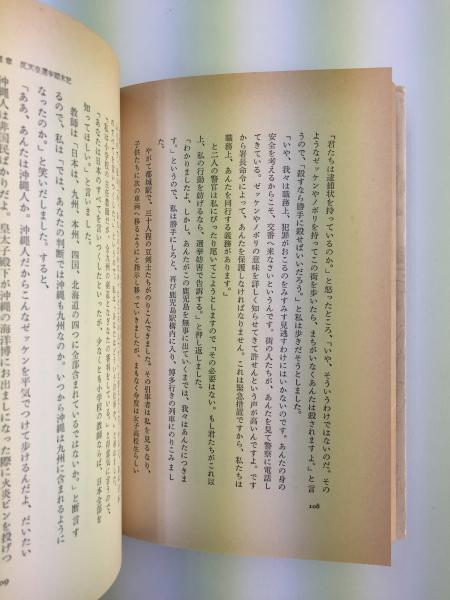 「君たちは逮捕状を持っているのか。」と怒ったところ、「いや、そういうわけではないのだ。その
ようなゼッケンやノボリを持ってこの街を歩いたら、まちがいなくあんたは殺されますよ。」と言
うので、「殺すなら勝手に殺せばいいだろう。」と私は歩きだそうとした。
「いや、我々は職務上、犯罪がおこるのをみすみす見逃すわけにはいかないのです。あんたの身の
安全を考えるからこそ、交番へ来なさいというんです。街の人たちが、あんたを見て警察に電話し
てきている。ゼッケンやノボリの意味を詳しく知らせてきて許せんという声が高いんですよ。です
から署長命令によって、あんたを保護しなければなりません。これは緊急措置ですから、私たちは
職務上、あんたを同行する義務があります。」
と二人の警官は私にぴったり尾いてこようとしますので「その必要はない。もし君たちがこれ以
上、私の行動を妨げるなら、選挙妨害で告訴する。」と押し返しました。
「わかりましたよ。しかし、あんたがこの鹿児島を無事に出ていくまでは、我々はあんたにつきま
す。」というので、私は勝手にしろと、再び鹿児島駅構内に入り、博多行きの列車にのりこみまし
た。
やがて都城駅で、三十人程の豆剣士たちがのりこんできました。その引率者は私を見るなり、
子供たちに次の車両へ移るようにと指示し移っていきましたが、まもなく今度は女子高校生らしい
108
知ってほしい。」と言います。
教師は「日本は、九州、本州、四国、北海道の四つに含まれているではないか。」と断言す
るので、私は「では、あなたの判断では沖縄も九州なのか。いつから沖縄は九州に含まれるように
なったのか。」と笑いだしました。すると、
「ああ、あんたは沖縄人か。沖縄人だからこんなゼッケンを平気でつけて歩けるんだよ。だいたい
沖縄人は非国民ばかりだよ。皇太子殿下が沖縄の海洋博にお出ましになった際に火炎ビンを投げつ
09